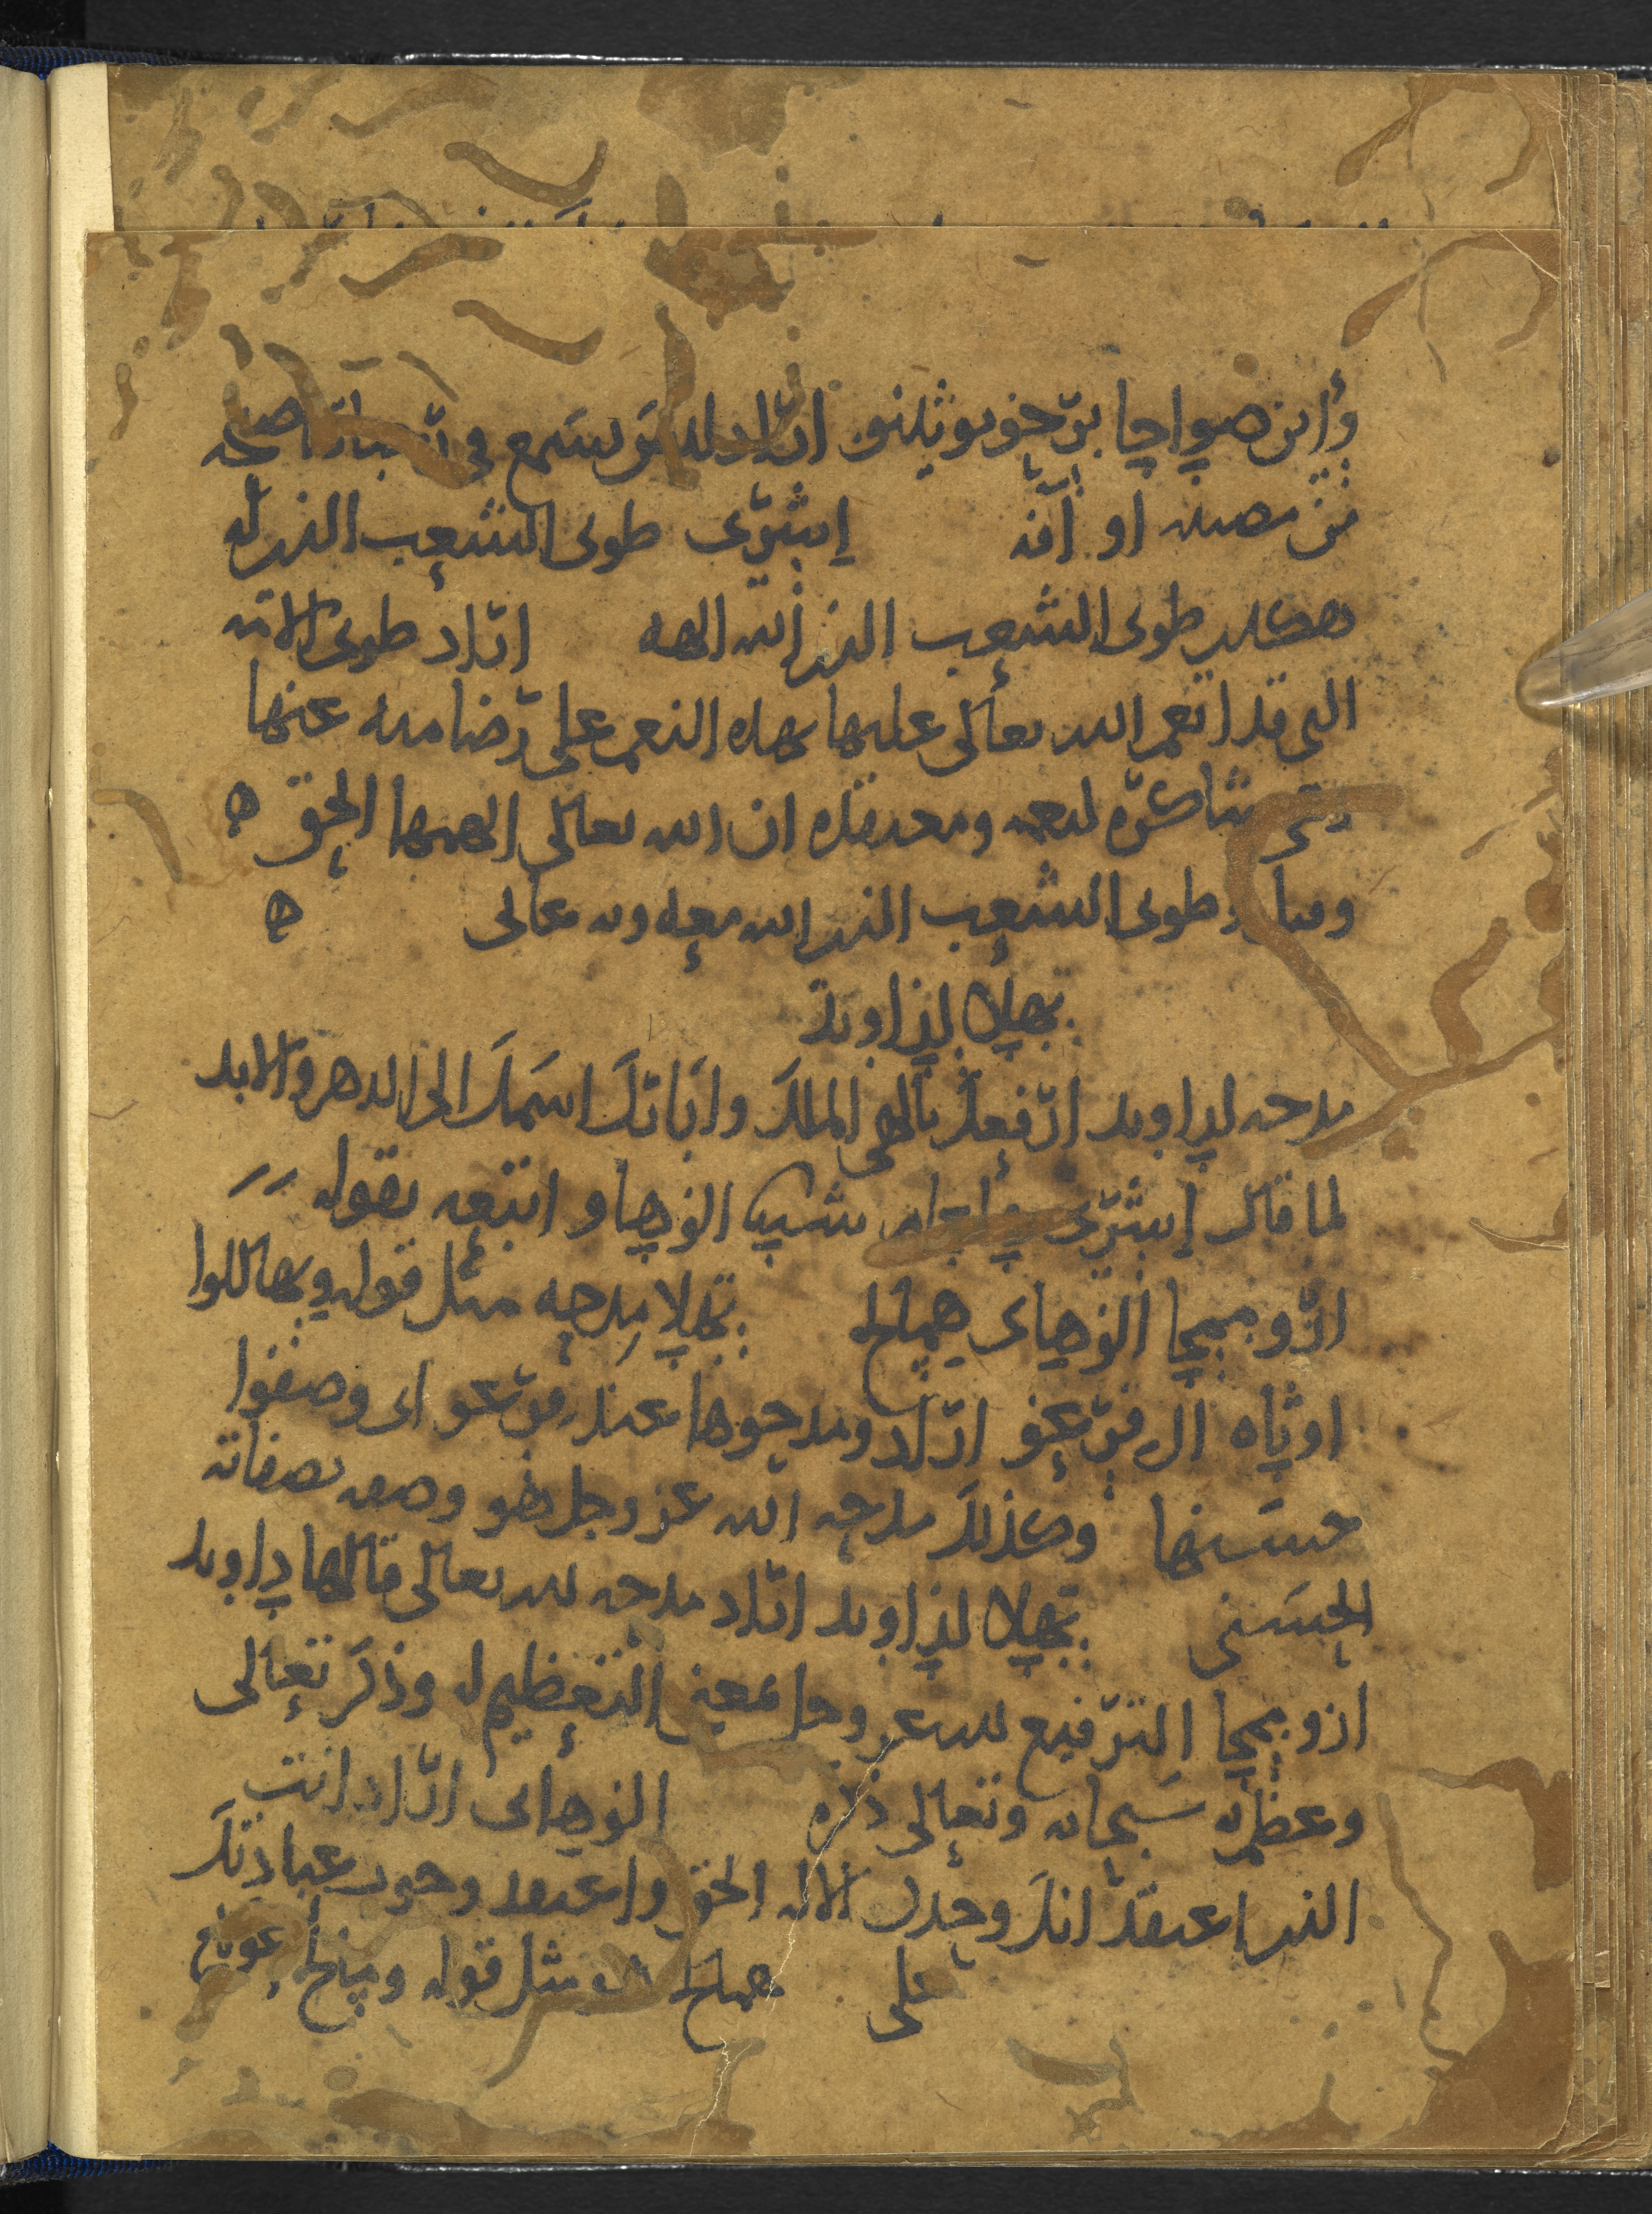 وأين صواحا برحوبوثينو اراد لم يسمع في رحباتنا صيحه
من مصيبه او آفه إشري طوبى الشعب الذي له
هكذي طوبى الشعب الذي الله الهه اراد طوبى الامه
التي قد انعم الله تعالى عليها بهذه النعم على رضا منه عنها
وهي شاكره لنعمه ومعتقده ان الله تعالى الهها الحق ه
وقيل طوبى الشعب الذي الله معبوده تعالى ه
تهلا لذاويد
مدحه لداويد ارفعك يالهي الملك وابارك اسمك الى الدهر والابد
لما قال إشري هاعام الوهاو اتبعه بقوله
اروميخا الوهاي هملخ تهلا مدحه مثل قوله ويهاللوا
اوثاه ال فرعو اراد ومدحوها عند فرعو اي وصفوا
حسنها وكذلك مدحه الله عز وجل هو وصفه بصفاته
الحسنى تهلا لذاويد اراد مدحه لله تعالى قالها داويد
اروميخا الترفيع لله عز وجل بمعنى التعظيم له وذكر تعالى
وعظمته سبحانه وتعالى ذكره الوهاي اراد انت
الذي اعتقد انك وحدك الاله الحق واعتقد وجوب عبادتك
على هملخ مثل قوله وملخ